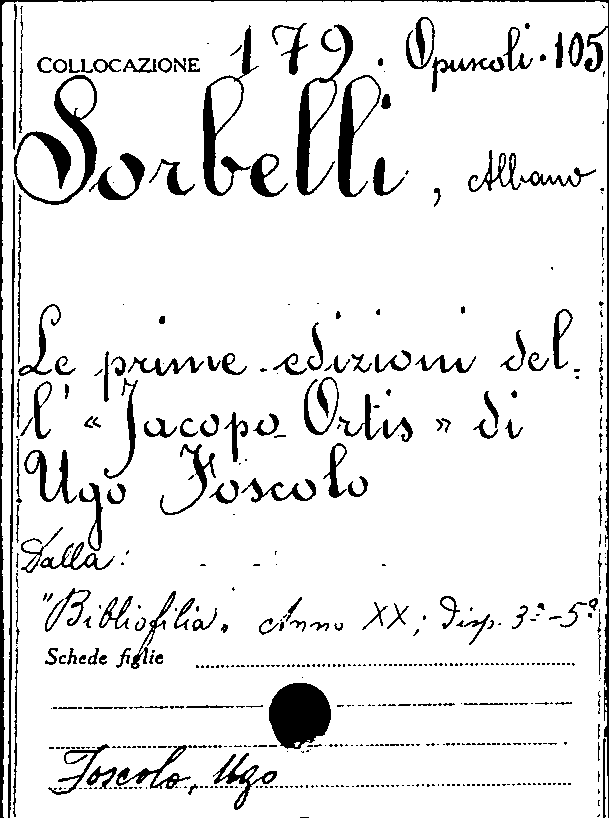 COLLOCAZIONE 179. Opuscoli. 105
Sorbelli, Albano
Le prime edizioni del-
l' « Jacopo Ortis » di
Ugo Foscolo
Dalla:
"Bibliofilia". Anno XX; Disp. 3ª-5ª
Schede figlie
Foscolo, Ugo